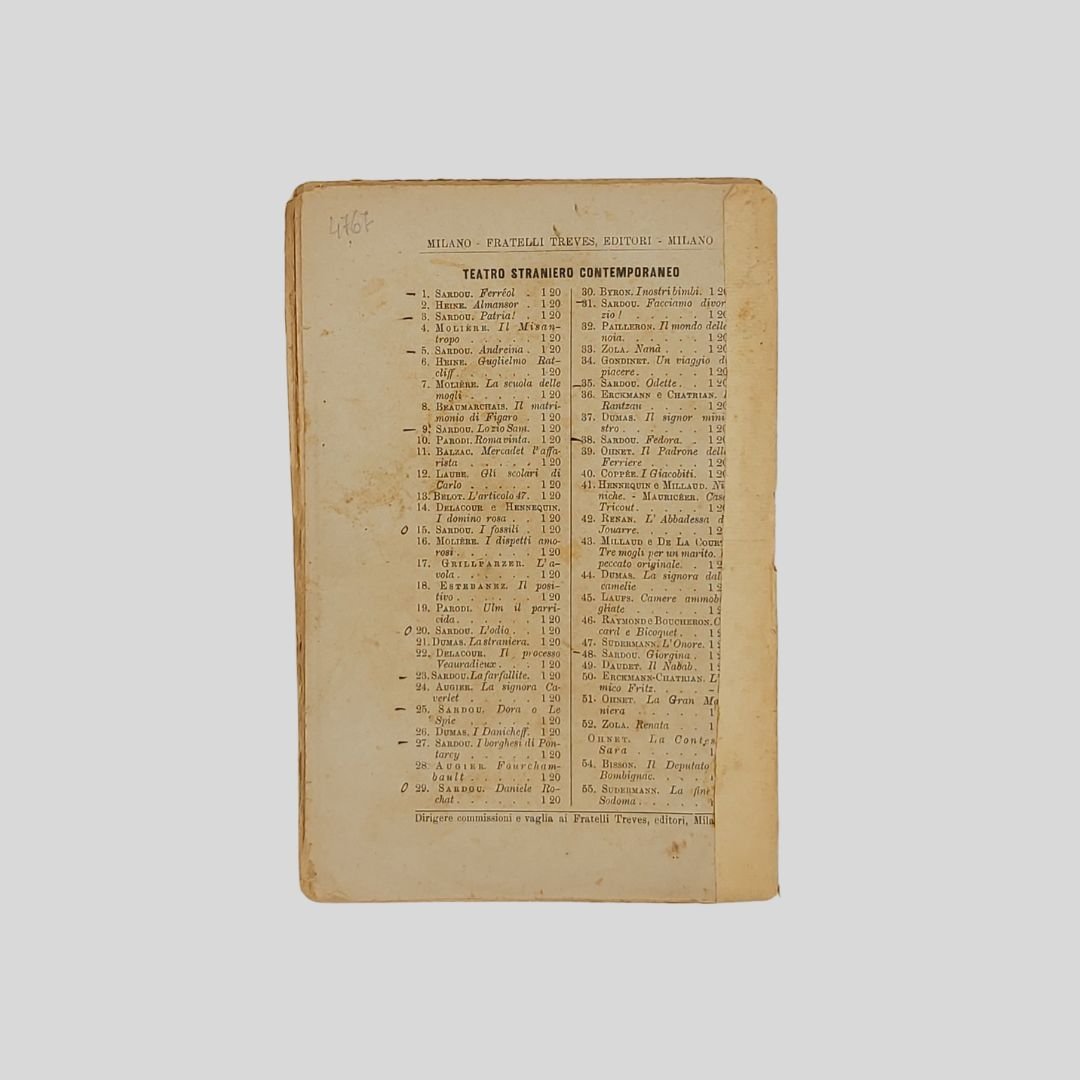 4767
MILANO - FRATELLI TREVES, EDITORI - MILANO
TEATRO STRANIERO CONTEMPORANEO
1. SARDOU. Ferréol . 1 20
2. HEINE. Almansor . 1 20
3. SARDOU. Patria! . 1 20
4. MOLIÈRE. Il Misan-
tropo . . . . . 1 20
5. SARDOU. Andreina . 1 20
6. HEINE. Guglielmo Rat-
cliff. . . . . . 1 20
7. MOLIÈRE. La scuola delle
mogli . . . . . 1 20
8. BEAUMARCHAIS. Il matri-
monio di Figaro . 1 20
9. SARDOU. Lo zio Sam. 1 20
10. PARODI. Roma vinta. 1 20
11. BALZAC. Mercadet l'affa-
rista . . . . . 1 20
12. LAUBE. Gli scolari di
Carlo . . . . . 1 20
13. BELOT. L'articolo 47. 1 20
14. DELACOUR e HENNEQUIN.
I domino rosa . . 1 20
15. SARDOU. I fossili . 1 20
16. MOLIÈRE. I dispetti amo-
rosi . . . . . 1 20
17. GRILLPARZER. L'a-
vola . . . . . 1 20
18. ESTEBANEZ. Il posi-
tivo . . . . . 1 20
19. PARODI. Ulm il parri-
cida. . . . . . 1 20
20. SARDOU. L'odio . . 1 20
21. DUMAS. La straniera. 1 20
22. DELACOUR. Il processo
Veauradieux . . . 1 20
23. SARDOU. La farfallite. 1 20
24. AUGIER. La signora Ca-
verlet . . . . . 1 20
25. SARDOU. Dora o Le
Spie . . . . . 1 20
26. DUMAS. I Danicheff. 1 20
27. SARDOU. I borghesi di Pon-
tarcy . . . . . 1 20
28. AUGIER. Fourcham-
bault . . . . . 1 20
29. SARDOU. Daniele Ro-
chat . . . . . 1 20
30. BYRON. I nostri bimbi. 1 20
31. SARDOU. Facciamo divor
zio! . . . . . 1 20
32. PAILLERON. Il mondo delle
noia. . . . . . 1 20
33. ZOLA. Nanà . . . 1 20
34. GONDINET. Un viaggio di
piacere. . . . . 1 20
35. SARDOU. Odette. . 1 20
36. ERCKMANN e CHATRIAN. I
Rantzau . . . . 1 20
37. DUMAS. Il signor mini
stro . . . . . 1 20
38. SARDOU. Fedora. . 1 20
39. OHNET. Il Padrone delle
Ferriere . . . . 1 20
40. COPPÉE. I Giacobiti. 1 20
41. HENNEQUIN e MILLAUD. Ni
niche. - MAURICÉER. Cas
Tricout. . . . . 1 20
42. RENAN. L'Abbadessa d
Jouarre. . . . . 1 2
43. MILLAUD e DE LA COUR
Tre mogli per un marito.
peccato originale. . 1 2
44. DUMAS. La signora dal
camelie . . . . 1 2
45. LAUFS. Camere ammobi
gliate . . . . . 1
46. RAYMOND e BOUCHERON. C
card e Bicoquet . . 1
47. SUDERMANN. L'Onore. 1
48. SARDOU. Giorgina. . 1
49. DAUDET. Il Nabab. . 1
50. ERCKMANN-CHATRIAN. L'
mico Fritz. . . . –
51. OHNET. La Gran Ma
niera . . . . . 1
52. ZOLA. Renata . . 1
OHNET. La Contes
Sara . . . . . 1
54. BISSON. Il Deputato
Bombignac. . . .
55. SUDERMANN. La fine
Sodoma . . . . .
Dirigere commissioni e vaglia ai Fratelli Treves, editori, Mila